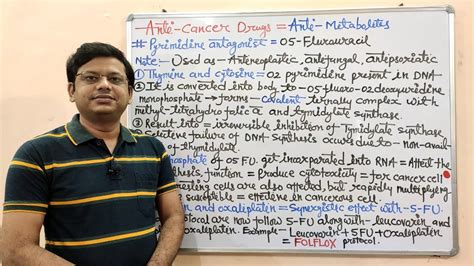 Anti-Cancer Drugs = Anti-Metabolites
# Pyrimidine antagonist = 05-Flurouracil
Note:- Used as - Anteneoplatic, antefungal, antepsoriatic
① Thymine and cytosine = 02 pyrimidine present in DNA
② It is converted into body, to - 05-fluoro-02deoxyuridine
monophosphate → forms - Covalent ternally complex with
methyl-tetrahydro folic a and tymidylate synthase.
③ Result into = irreversible inhibition of Tymidylate synthase
Seleteve failure of DNA-synthesis occurs due to - non-avail
of thymidylate.
phosphate of 05 FU. get incorporated into RNA = Affect the
synthesis, function = Produce cytotoxicity = for cancer cell
cells are also affected, but rapidly multiplying
susceptible = effeteve in cancerous cell.
and oxaliplaten = Synergistic effect with - 5-FU.
are now follow 5-FU along with - leucovorin and
oxaliplaten. Example - Leucovorin + 5FU + Oxaliplaten
= FOLFLOX protocol.